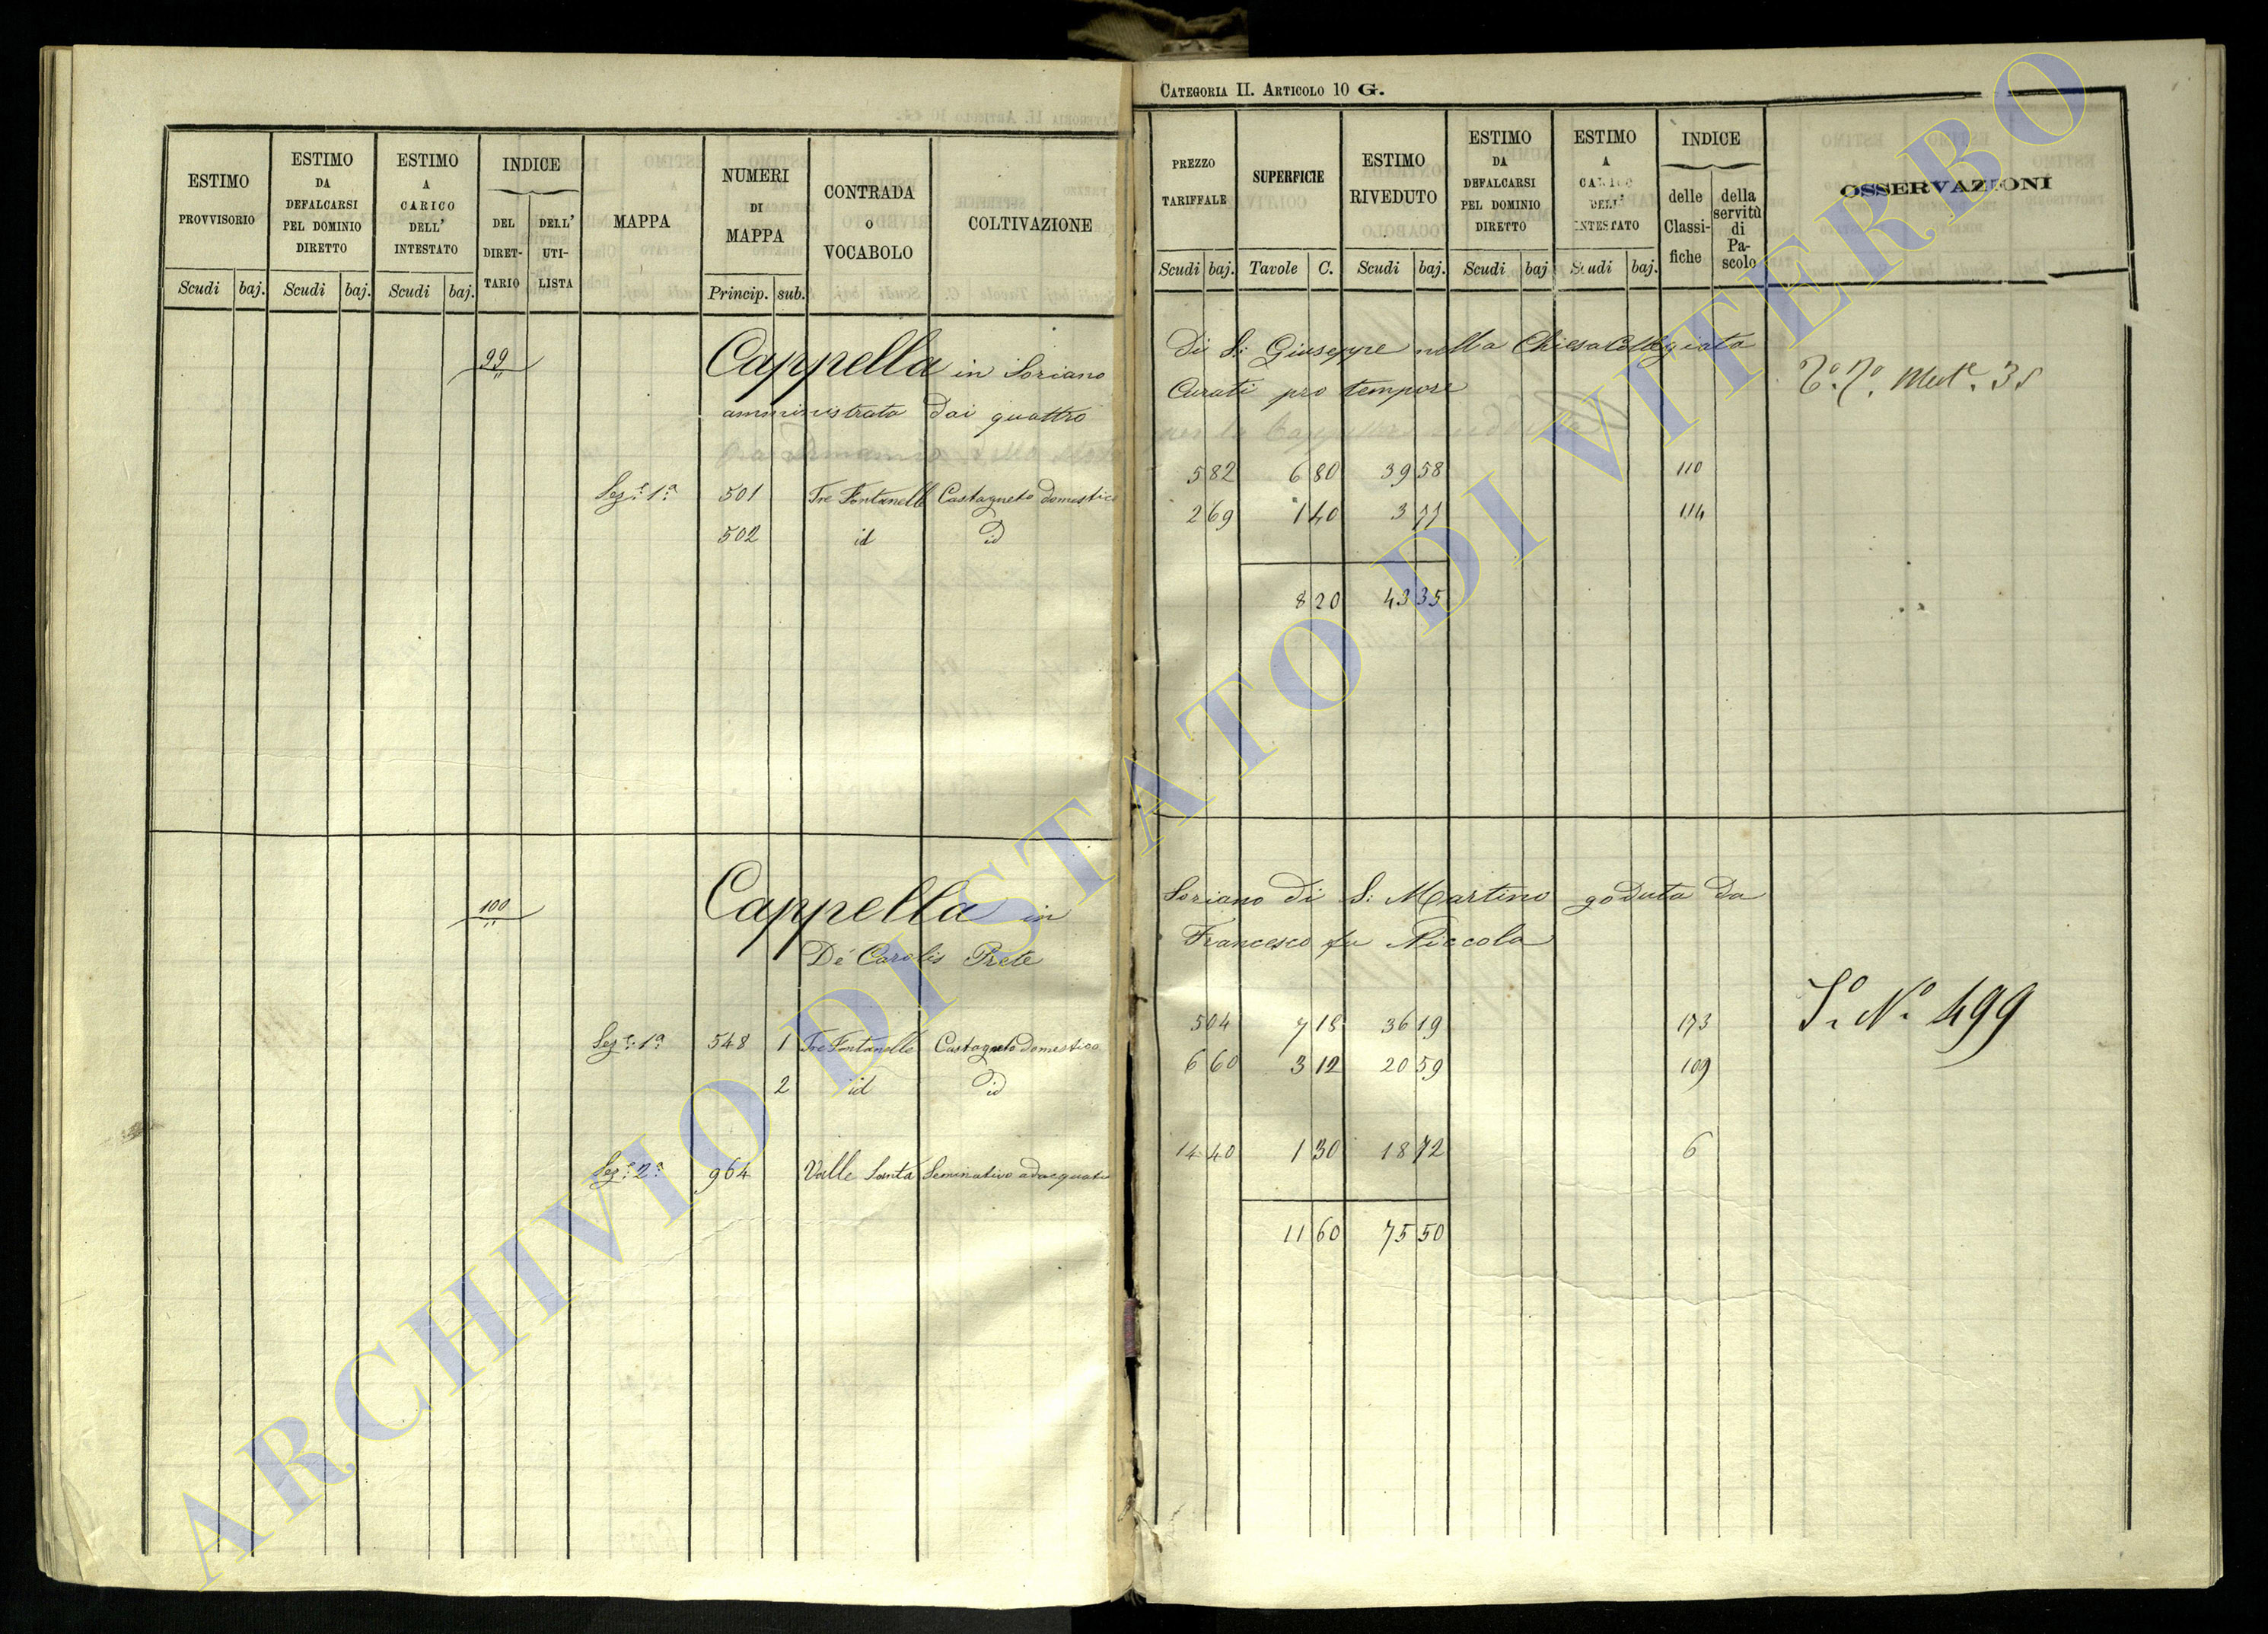 CATEGORIA II. ARTICOLO 10 G.
ESTIMO PROVVISORIO
ESTIMO DA DEFALCARSI PEL DOMINIO DIRETTO
ESTIMO A CARICO DELL' INTESTATO
INDICE
DEL DIRET-TARIO
DELL' UTI-LISTA
MAPPA
NUMERI DI MAPPA
CONTRADA o VOCABOLO
COLTIVAZIONE
Scudi baj. Scudi baj. Scudi baj. Princip. sub.
PREZZO TARIFFALE
SUPERFICIE
ESTIMO RIVEDUTO
ESTIMO DA DEFALCARSI PEL DOMINIO DIRETTO
ESTIMO A CARICO DELL' INTESTATO
INDICE
delle Classi-fiche
della servitù di Pa-scolo
OSSERVAZIONI
Scudi baj. Tavole C. Scudi baj. Scudi baj Scudi baj.
99 Cappella in Soriano Di S: Giuseppe nella Chiesa Collegiata
amministrata dai quattro Curati pro tempore
Sez.e 1a 501 Tre Fontanelle Castagneto domestico 5 82 6 80 39 58 110
502 id id 2 69 1 40 3 77 114
8 20 43 35
100 Cappella in Soriano di S: Martino goduta da
De Carolis Prete Francesco fu Niccola
Sez.e 1a 548 1 Tre Fontanelle Castagneto domestico 5 04 7 18 36 19 173
2 id id 6 60 3 12 20 59 109
S. N.o 499
Sez.e 2a 964 Valle Santa Seminativo adacquativo 14 40 1 30 18 72 6
11 60 75 50
ARCHIVIO DI STATO DI VITERBO